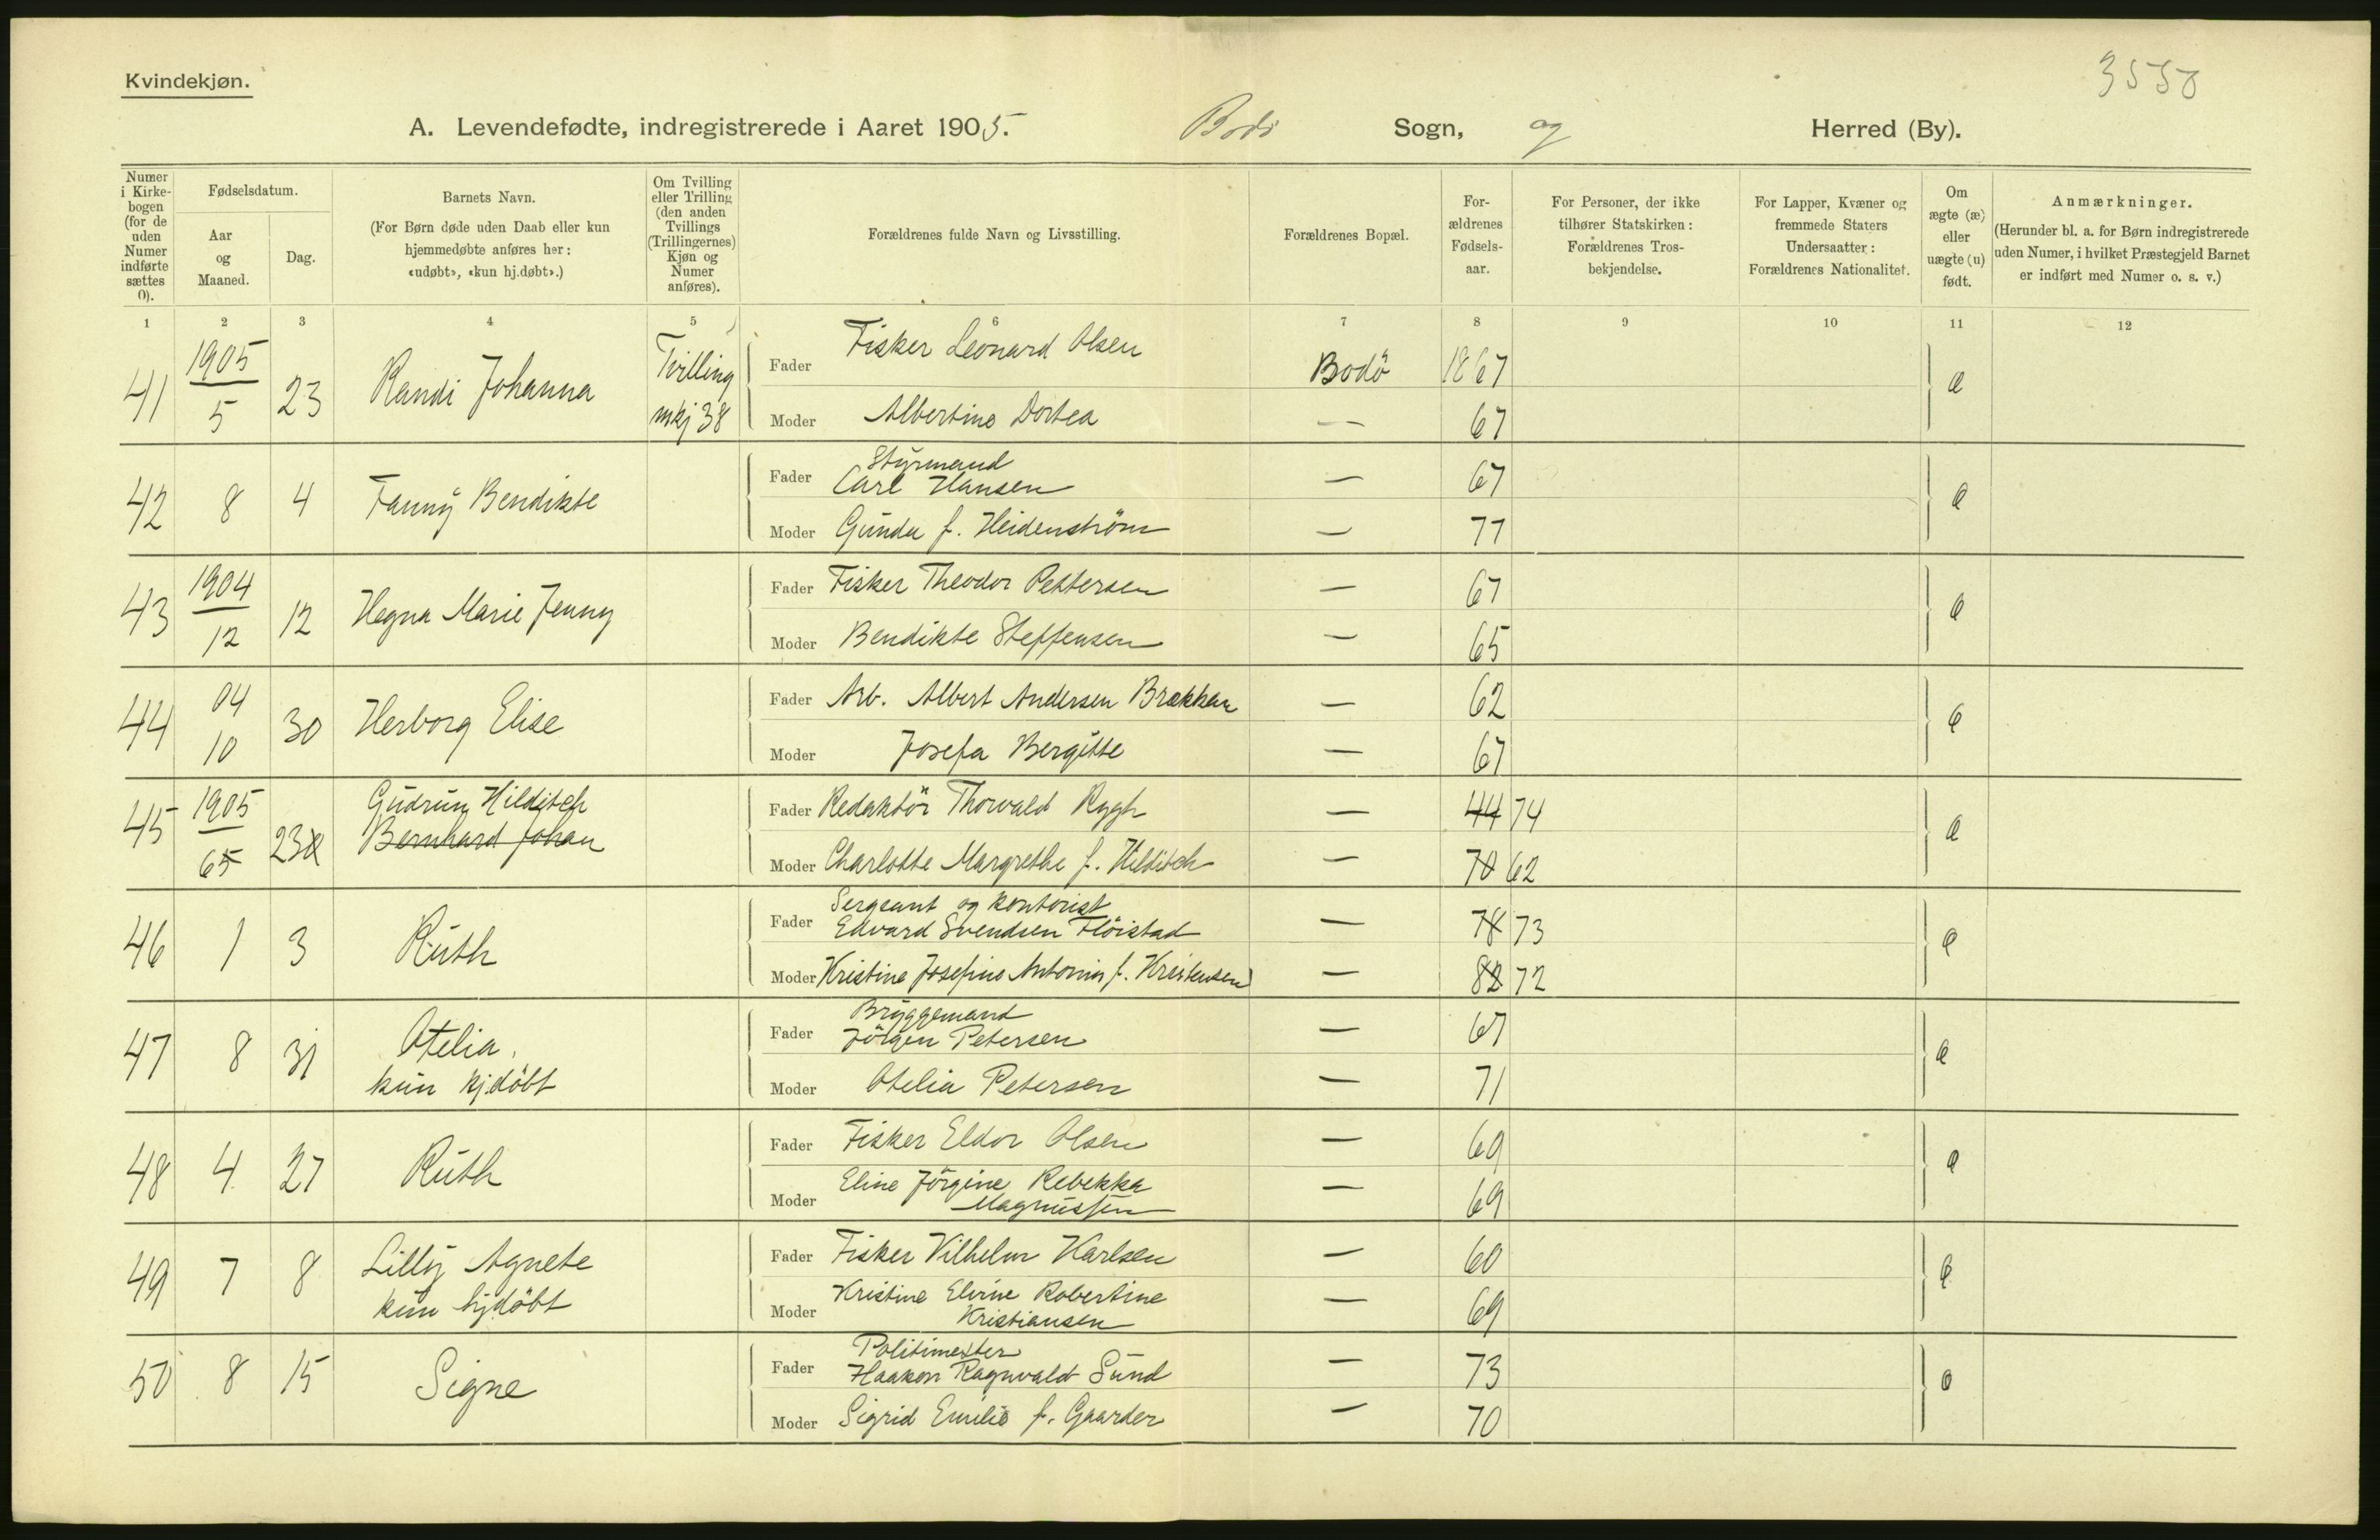 Kvindekjøn.
3558
A. Levendefødte, indregistrerede i Aaret 1905. Bodö Sogn, og Herred (By).
Numer i Kirkebogen (for de uden Numer indførte sættes 0).
Fødselsdatum.
Aar og Maaned.
Dag.
Barnets Navn.
(For Børn døde uden Daab eller kun hjemmedøbte anføres her: «udøbt», «kun hj.døbt».)
Om Tvilling eller Trilling (den anden Tvillings (Trillingernes) Kjøn og Numer anføres).
Forældrenes fulde Navn og Livsstilling.
Forældrenes Bopæl.
Forældrenes Fødselsaar.
For Personer, der ikke tilhører Statskirken: Forældrenes Trosbekjendelse.
For Lapper, Kvæner og fremmede Staters Undersaatter: Forældrenes Nationalitet.
Om ægte (æ) eller uægte (u) født.
Anmærkninger.
(Herunder bl. a. for Børn indregistrerede uden Numer, i hvilket Præstegjeld Barnet er indført med Numer o. s. v.)
1 2 3 4 5 6 7 8 9 10 11 12
41 1905 5 23 Randi Johanna Tvilling mkj 38
Fader Fisker Leonard Olsen Bodö 1867 æ
Moder Albertine Dortea — 67
42 8 4 Fanny Bendikte
Fader Styrmand
Carl Hansen — 67 æ
Moder Gunda f. Heidenström — 77
43 1904 12 12 Hegna Marie Jenny
Fader Fisker Theodor Pettersen — 67 æ
Moder Bendikte Steffensen — 65
44 04 10 30 Herborg Elise
Fader Arb. Albert Andersen Brækkan — 62 æ
Moder Josefa Bergitte — 67
45 1905 65 23 Gudrun Hilditch
Bernhard Johan
Fader Redaktör Thorvald Rygh — 44 74 æ
Moder Charlotte Margrethe f. Hilditch — 70 62
46 1 3 Ruth
Fader Sergeant og kontorist
Edvard Svendsen Flöistad — 78 73 æ
Moder Kristine Josefine Antonie f. Kristensen — 82 72
47 8 31 Otelia.
kun hj.döbt
Fader Bryggemand
Jörgen Petersen — 67 æ
Moder Otelia Petersen — 71
48 4 27 Ruth
Fader Fisker Eldor Olsen — 69 æ
Moder Eline Jörgine Rebekka
Magnussen — 69
49 7 8 Lilly Agnete
kun hj.döbt
Fader Fisker Vilhelm Karlsen — 60 æ
Moder Kristine Elvine Robertine
Kristiansen — 69
50 8 15 Signe
Fader Politimester
Haakon Ragnvald Sund — 73 æ
Moder Sigrid Emilie f. Gaarder — 70